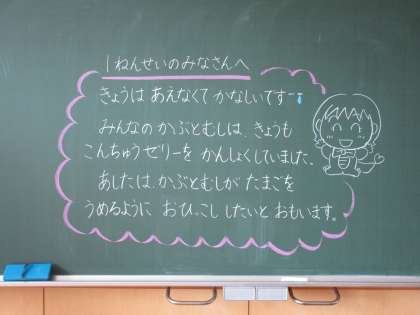 1ねんせいのみなさんへ
きょうは あえなくて かなしいです--
みんなの かぶとむしは、きょうも
こんちゅうゼリーを かんしょくしていました。
あしたは、かぶとむしが たまごを
うめるように おひっこし したいと おもいます。